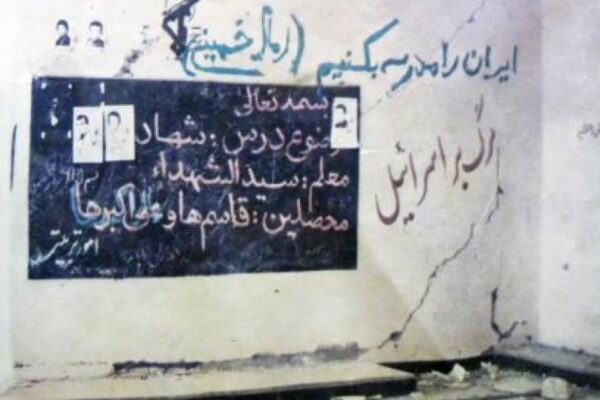 ایران را مدرسه بکنیم (امام خمینی)
بسمه تعالی
موضوع درس: شهادت
معلم: سیدالشهداء
محصلین: قاسم‌ها و علی اکبرها
امور تربیتی
مرگ بر اسرائیل